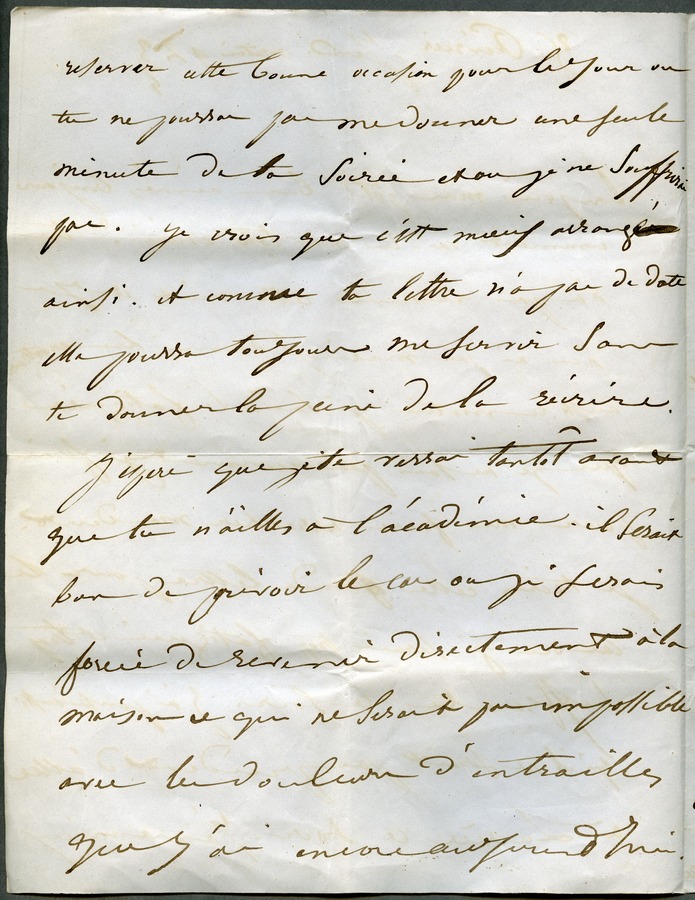 reserver cette bonne occasion pour le jour ou
tu ne pourra pas me donner une seule
minute de ta soirée et ou je ne souffrirai
pas. je crois que c'est mieux arrangé
ainsi. et comme ta lettre n'a pas de date
elle pourra toujours me servir sans
te donner la peine de la réécrire.
J'espère que je te verrai tantôt avant
que tu n'ailles a l'académie. il serait
bon de prévoir le cas ou je serais
forcée de revenir directement à la
maison ce qui ne serait pas impossible
avec les douleurs d'entrailles
que j'ai encore aujourd'hui.